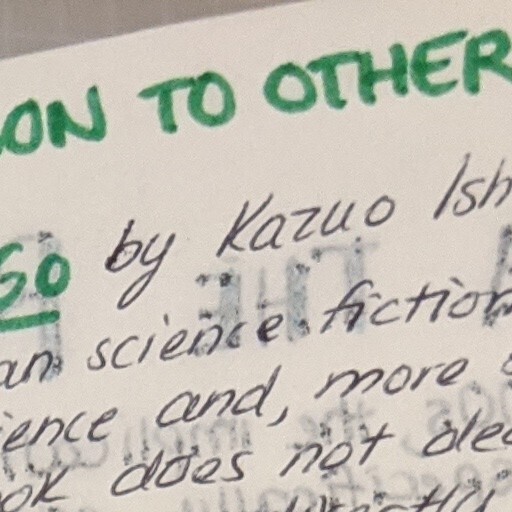 ON TO OTHER
Go by Kazuo Ish
an science fiction
ience and, more
ok does not